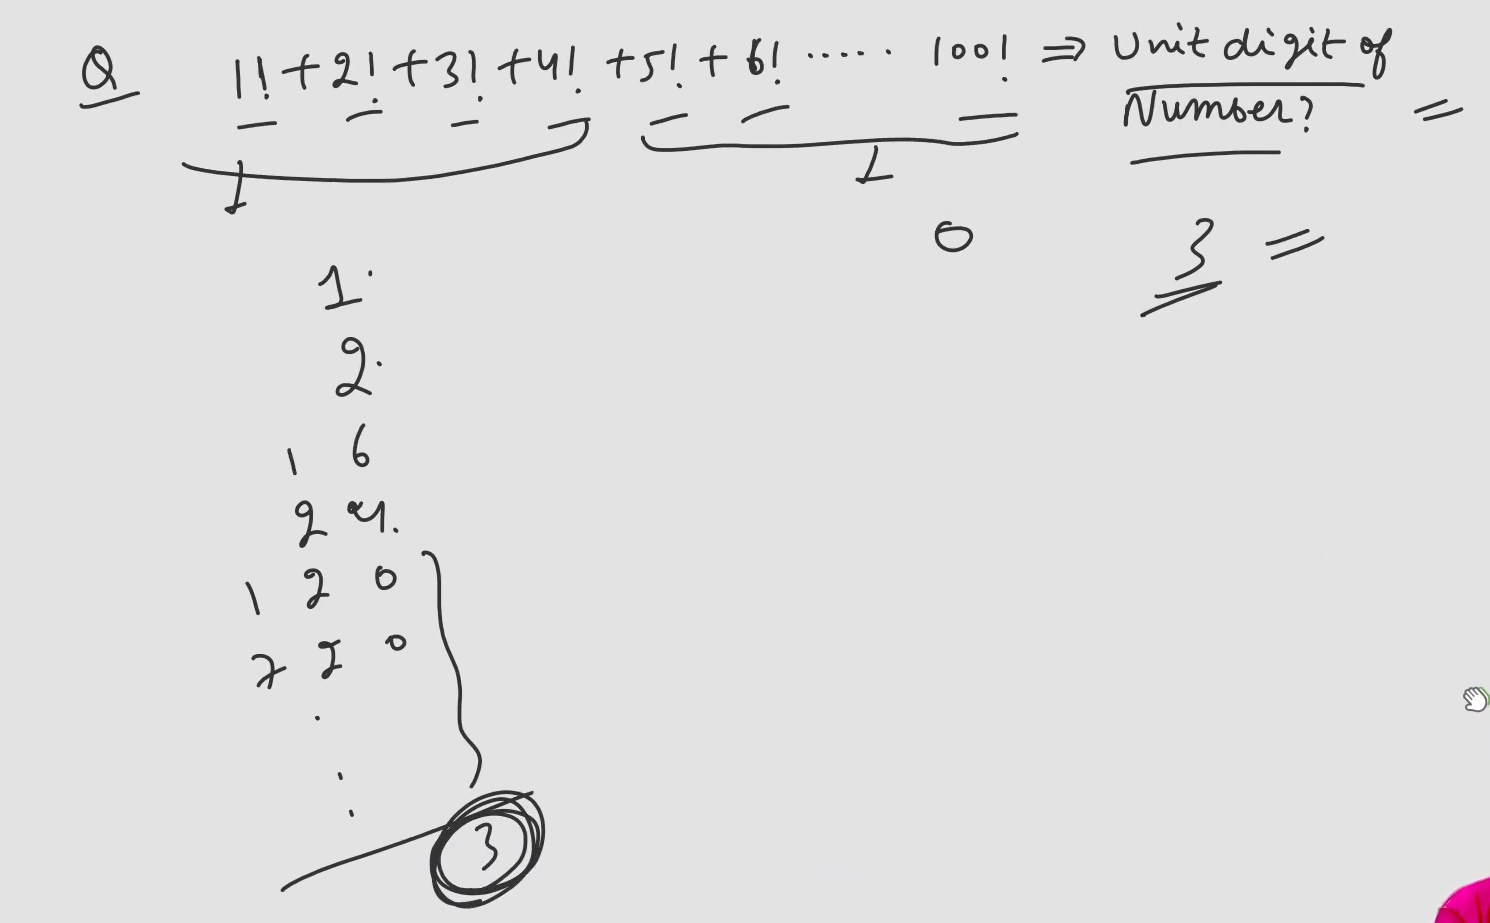 Q 1! + 2! + 3! + 4! + 5! + 6! ..... 100! ⇒ Unit digit of
Number? =
0
3 =
1.
2.
1 6
2 4.
1 2 0
7 2 0
.
.
.
3